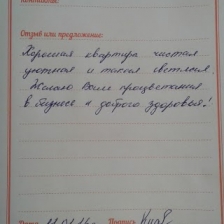 Отзыв или предложение:
Хорошая квартира чистая
уютная и такая светлая.
Желаю Вам процветания
в бизнесе и доброго здоровья!
Дата
Подпись